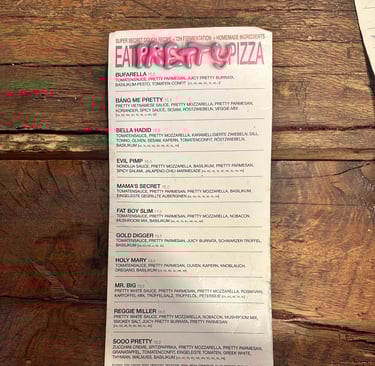 SUPER SECRET DOUGH RECIPE • 72H FERMENTATION • HOMEMADE INGREDIENTS
EAT PRETTY PIZZA
BUFARELLA
TOMATENSAUCE, PRETTY PARMESAN, JUICY PRETTY BURRATA,
BASILIKUM-PESTO, TOMATEN-CONFIT.
BÁNG ME PRETTY
PRETTY VIETNAMESE SAUCE, PRETTY MOZZARELLA, PRETTY PARMESAN,
KORIANDER, SPICY SAUCE, SESAM, RÖSTZWIEBELN, VEGGIE MIX
BELLA HADID
TOMATENSAUCE, PRETTY MOZZARELLA, KARAMELLISIERTE ZWIEBELN, DILL,
TONNO, OLIVEN, SESAM, KAPERN, TOMATENCONFIT, RÖSTZWIEBELN,
BASILIKUM
EVIL PIMP
NONDUJA SAUCE, PRETTY MOZZARELLA, PRETTY PARMESAN,
SPICY SALAMI, JALAPENO-CHILI MARMELADE
MAMA'S SECRET
TOMATENSAUCE, PRETTY PARMESAN, PRETTY MOZZARELLA, BASILIKUM,
EINGELEGTE GEGRILLTE AUBERGINEN
FAT BOY SLIM
TOMATENSAUCE, PRETTY PARMESAN, PRETTY MOZZARELLA, NOBACON,
MUSHROOM MIX, BASILIKUM
GOLD DIGGER
TOMATENSAUCE, PRETTY PARMESAN, JUICY BURRATA, SCHWARZER TRÜFFEL,
BASILIKUM
HOLY MARY
TOMATENSAUCE, PRETTY PARMESAN, OLIVEN, KAPERN, KNOBLAUCH,
OREGANO, BASILIKUM
MR. BIG
PRETTY WHITE SAUCE, PRETTY PARMESAN, PRETTY MOZZARELLA, ROSMARIN,
KARTOFFEL-MIX, TRÜFFELSALZ, TRÜFFELÖL, PETERSILIE
REGGIE MILLER
PRETTY WHITE SAUCE, PRETTY MOZZARELLA, NOBACON, MUSHROOM MIX,
SMOKEY SALT, JUICY PRETTY BURRATA, PRETTY PARMESAN
SOOO PRETTY
ZUCCHINI CREME, SPITZPAPRIKA, PRETTY MOZZARELLA, PRETTY PARMESAN,
GRANATAPFEL, TOMATENCONFIT, EINGELEGTE TOMATEN, GREEK WHITE,
THYMIAN, WALNUSS, BASILIKUM